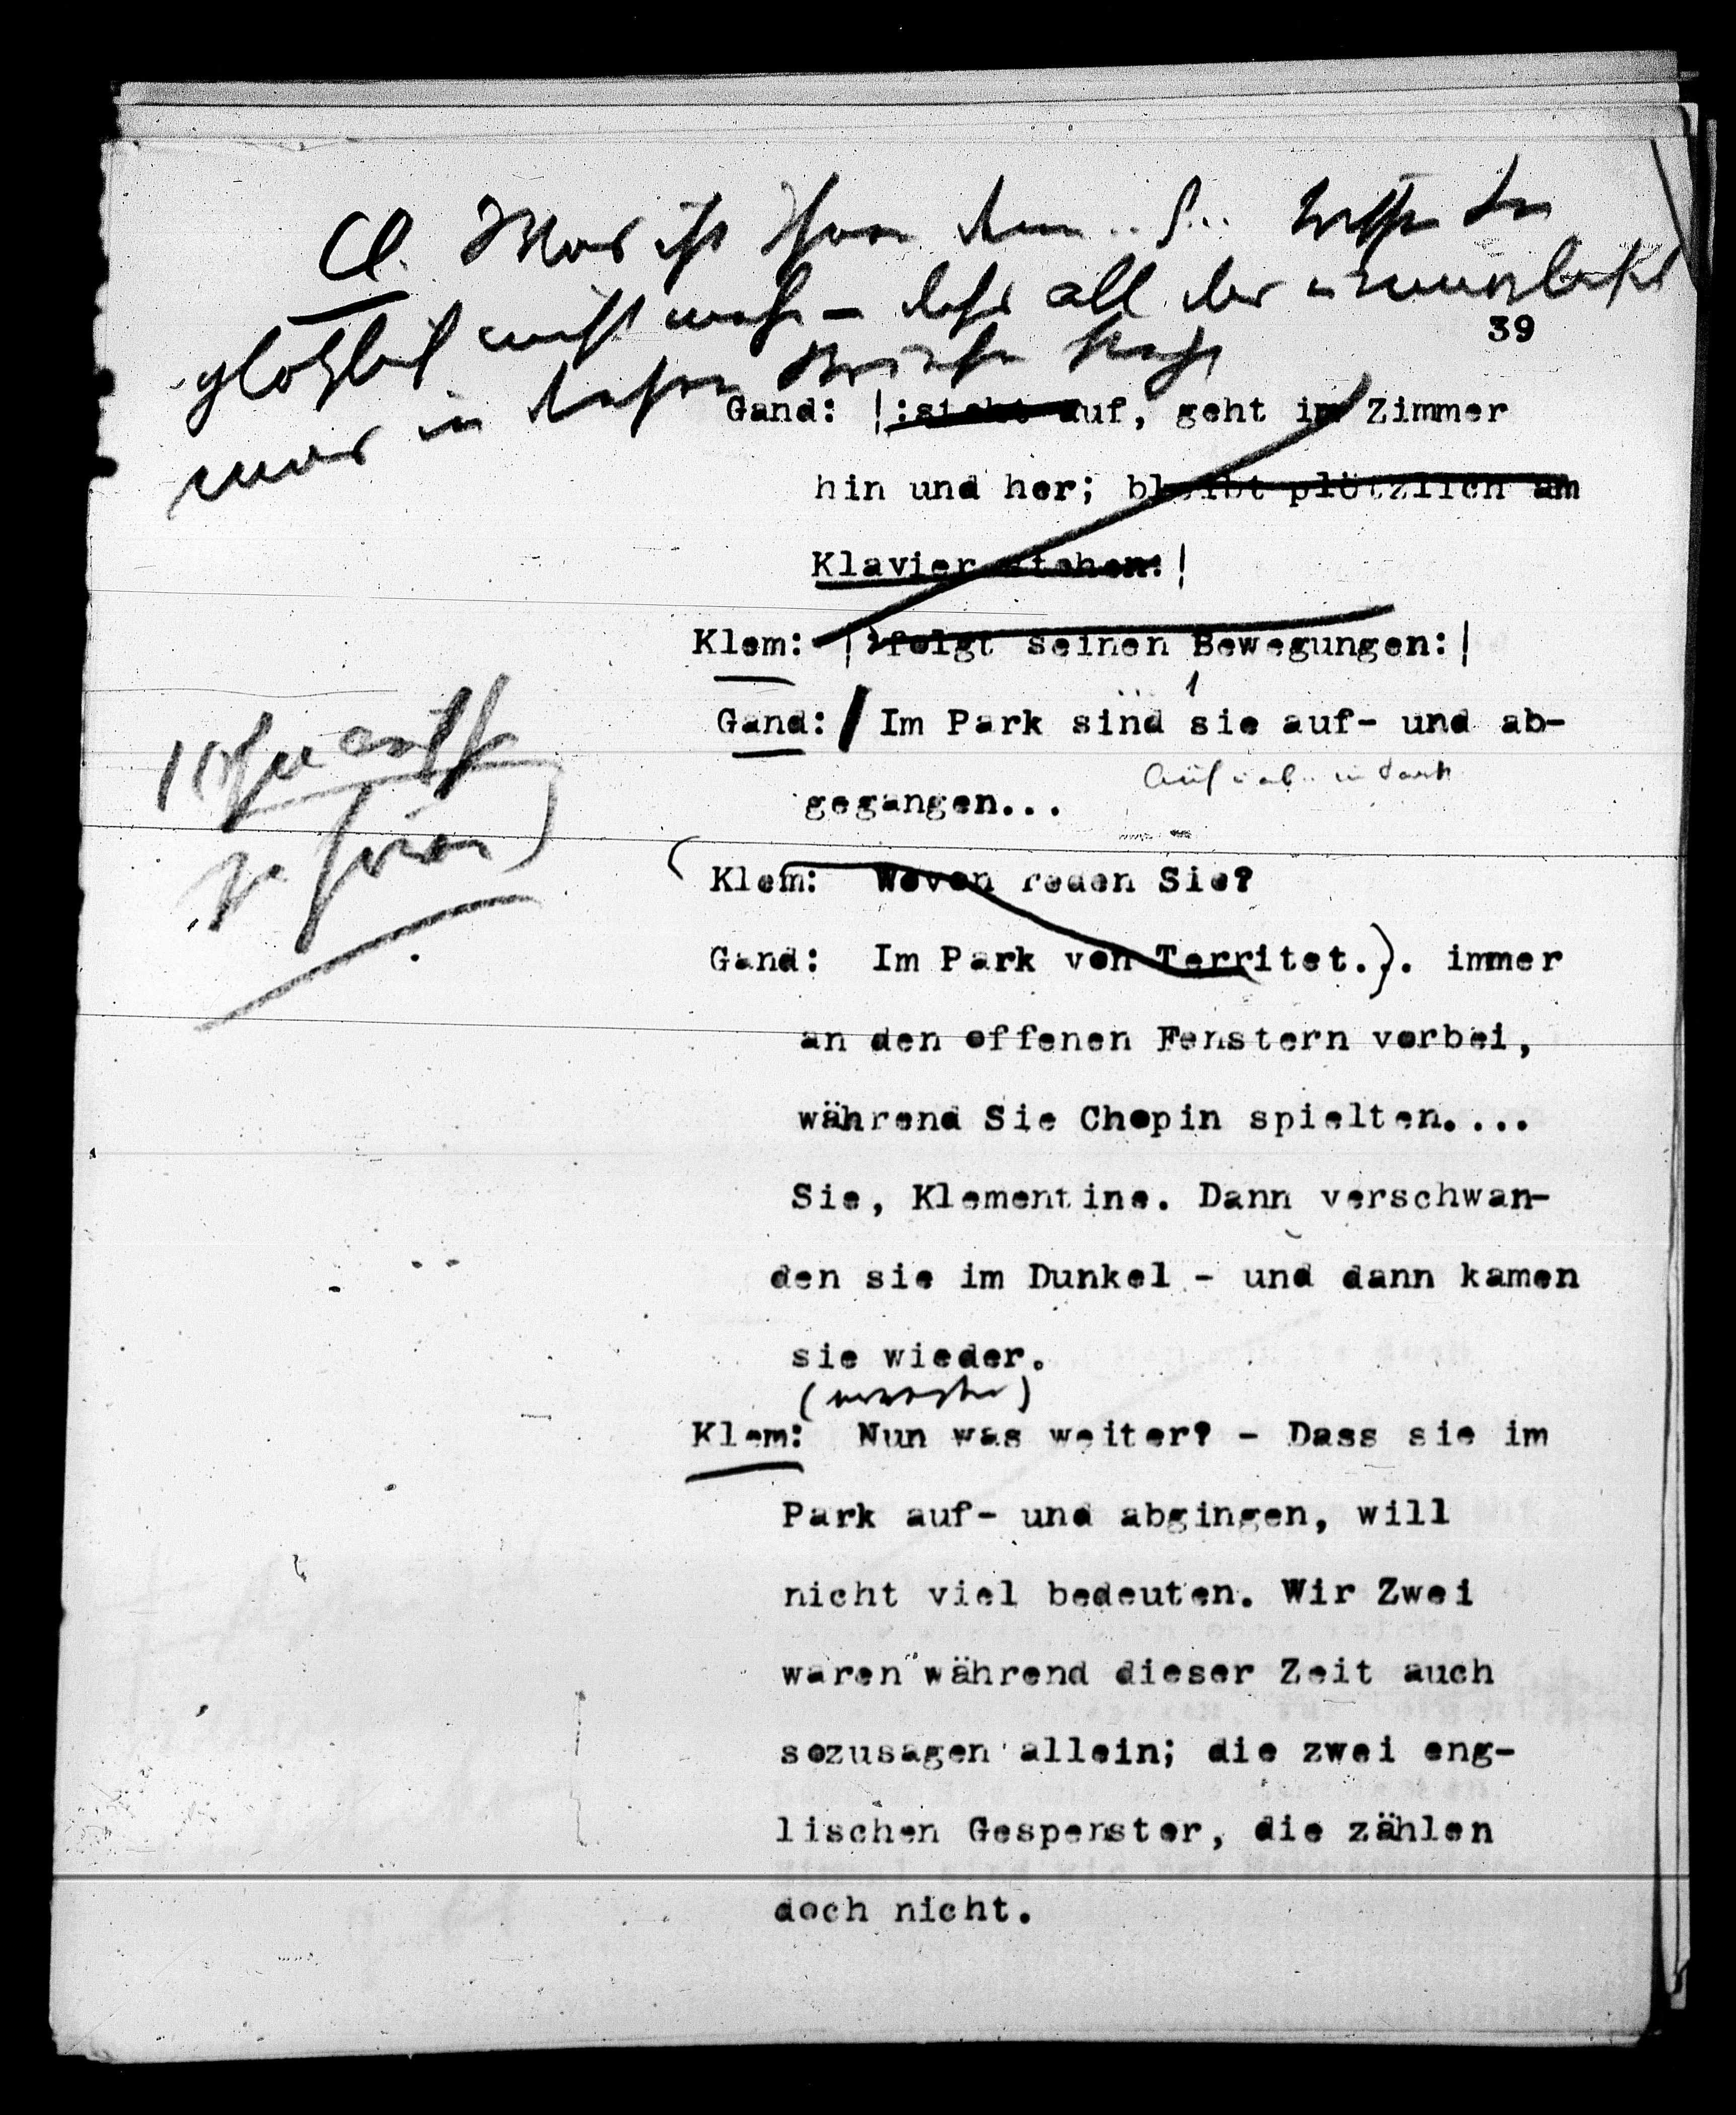 Cl. Was ist Ihnen denn .. S...
plötzlich nicht mehr – dass all das
war in
39
Gand: |:steht auf, geht im Zimmer
hin und her; bleibt plötzlich am
Klavier stehen:|
Klem: |:folgt seinen Bewegungen:|
Gand: Im Park sind sie auf- und ab-
gegangen...
Klem: Wovon reden Sie?
Gand: Im Park von Territet.). immer
an den offenen Fenstern vorbei,
während Sie Chopin spielten....
Sie, Klementine. Dann verschwan-
den sie im Dunkel - und dann kamen
sie wieder.
Klem: Nun was weiter? - Dass sie im
Park auf- und abgingen, will
nicht viel bedeuten. Wir Zwei
waren während dieser Zeit auch
sozusagen allein; die zwei eng-
lischen Gespenster, die zählen
doch nicht.